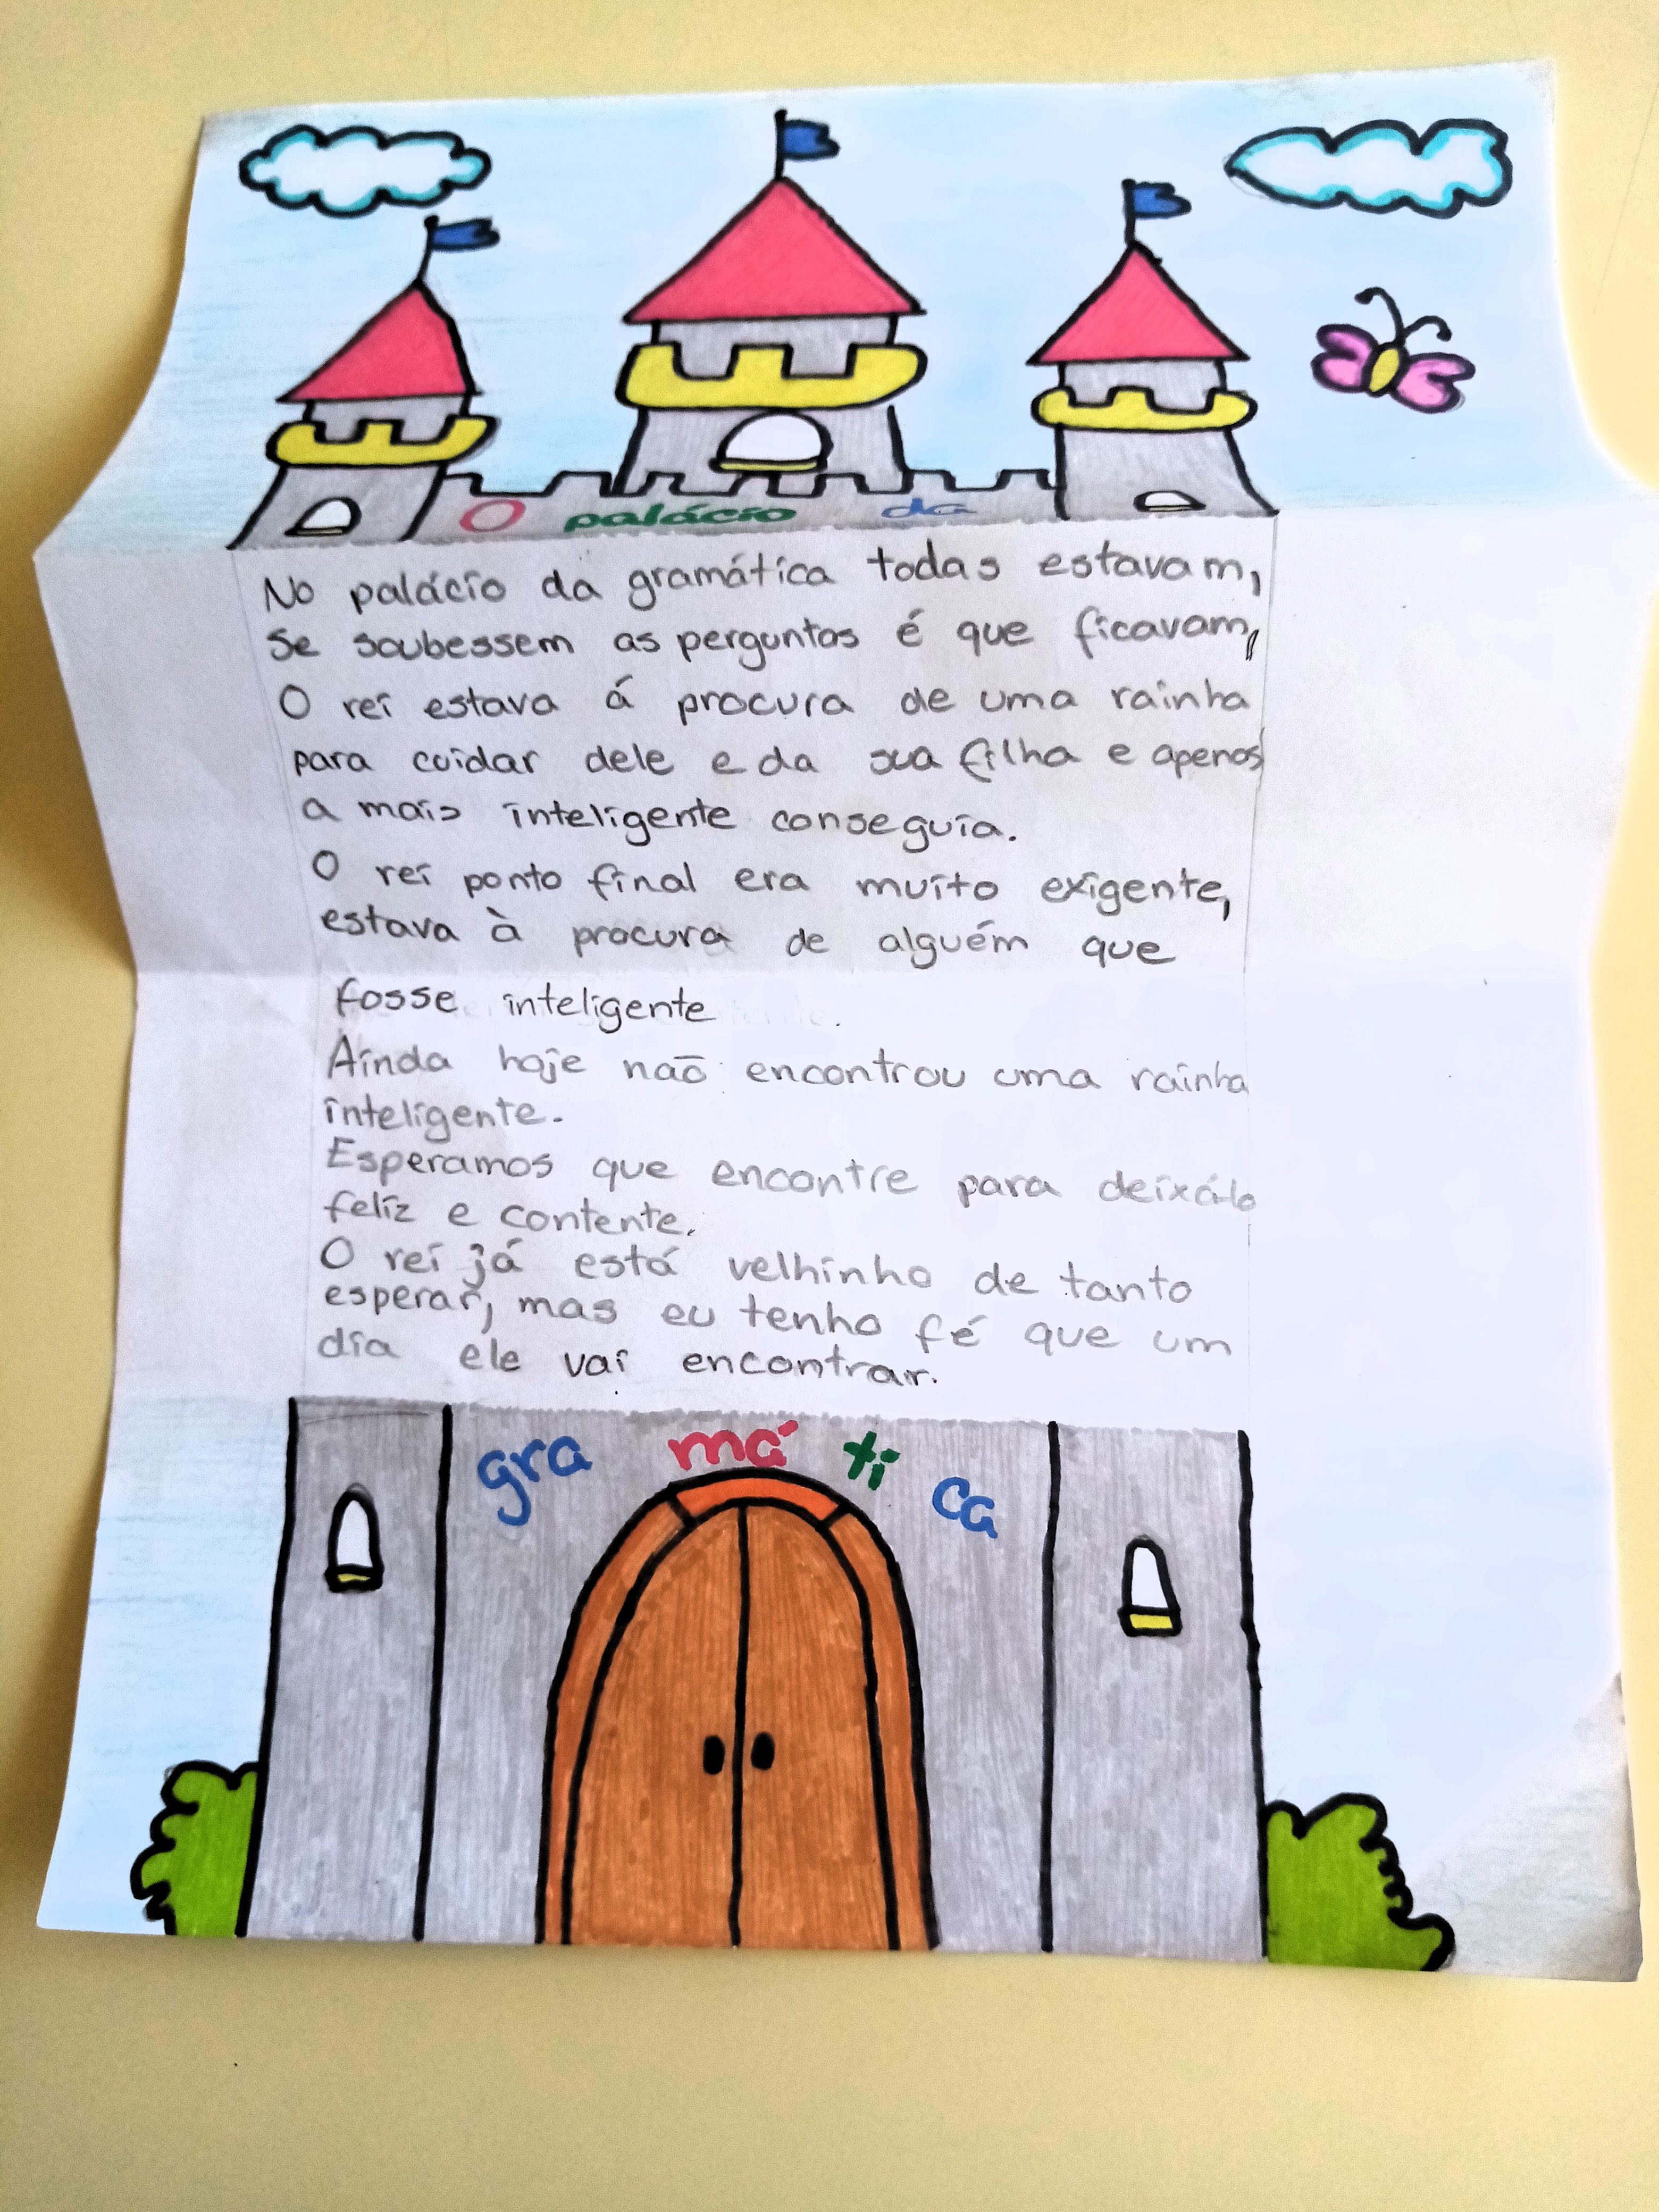 O palácio da
No palácio da gramática todas estavam,
Se soubessem as perguntas é que ficavam,
O rei estava á procura de uma rainha
para cuidar dele e da sua filha e apenas
a mais inteligente conseguia.
O rei ponto final era muito exigente,
estava à procura de alguém que
fosse inteligente
Ainda hoje naõ encontrou uma rainha
inteligente.
Esperamos que encontre para deixá-lo
feliz e contente.
O rei já está velhinho de tanto
esperar, mas eu tenho fé que um
dia ele vai encontrar.
gra má ti ca